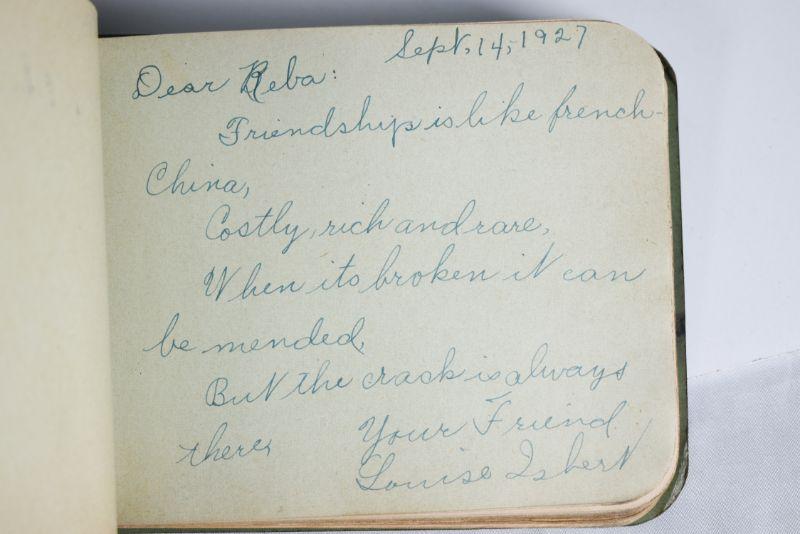 Sept. 14, 1927
Dear Reba:
Friendship is like french-
China,
Costly, rich and rare,
When its broken it can
be mended,
But the crack is always
there,
Your Friend
Louise Isbert